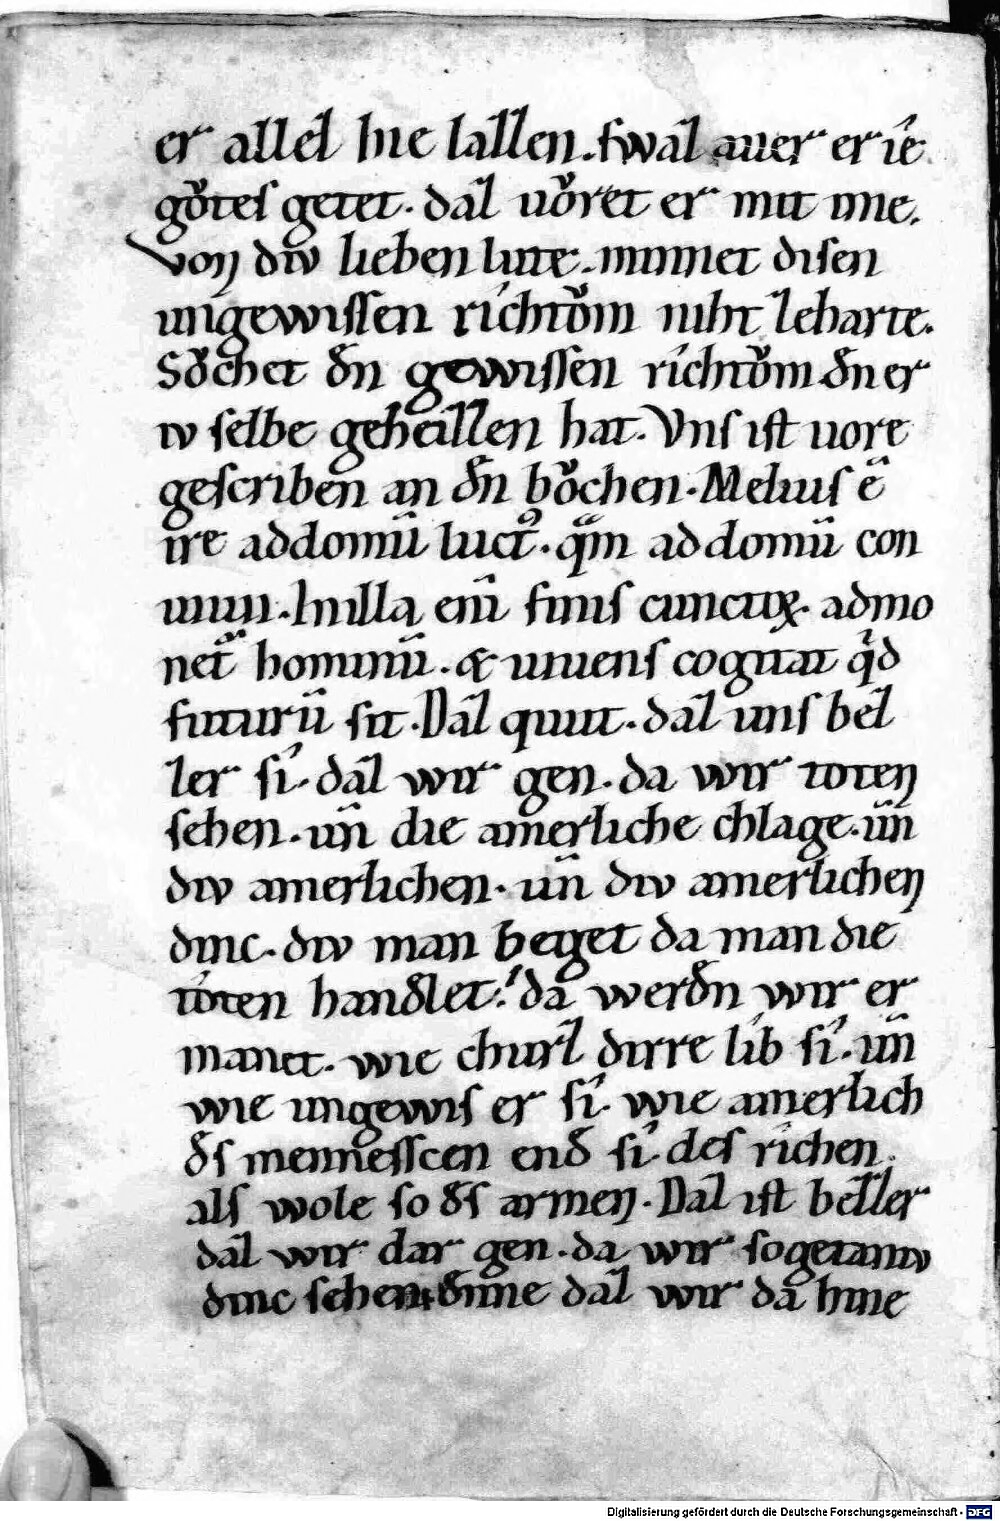 er allez hie lazzen. swaz auer er ie
gůtes getet. daz uůret er mit ime.
Von div lieben livte. minnet disen
ungewissen richtům niht zeharte.
Sůchet dēn gewissen richtům dēn er
iv selbe geheizzen hat. Vns ist uore
gescriben an dēn bůchen. Melius ē
ire ad domū luctꝰ. quam ad domū con
uiuii. In illa enī finis cunctoꝝ. admo
net̄ hominū. & uiuens cogitat qͥd
futurū sit. Daz quiit. daz uns bez
zer si. daz wir gen. da wir toten
sehen. uñ die amerliche chlage. uñ
div amerlichen. uñ div amerlichen
dinc. div man beget da man die
toten handlet. da werdēn wir er
manet. wie churz dirre lib si. uñ
wie ungewis er si. wie amerlich
des mennesscen end si. des richen.
als wole so des armen. Daz ist bezzer
daz wir dar gen. da wir so getaniv
dinc sehen. denne daz wir da hine
Digitalisierung gefördert durch die Deutsche Forschungsgemeinschaft - DFG